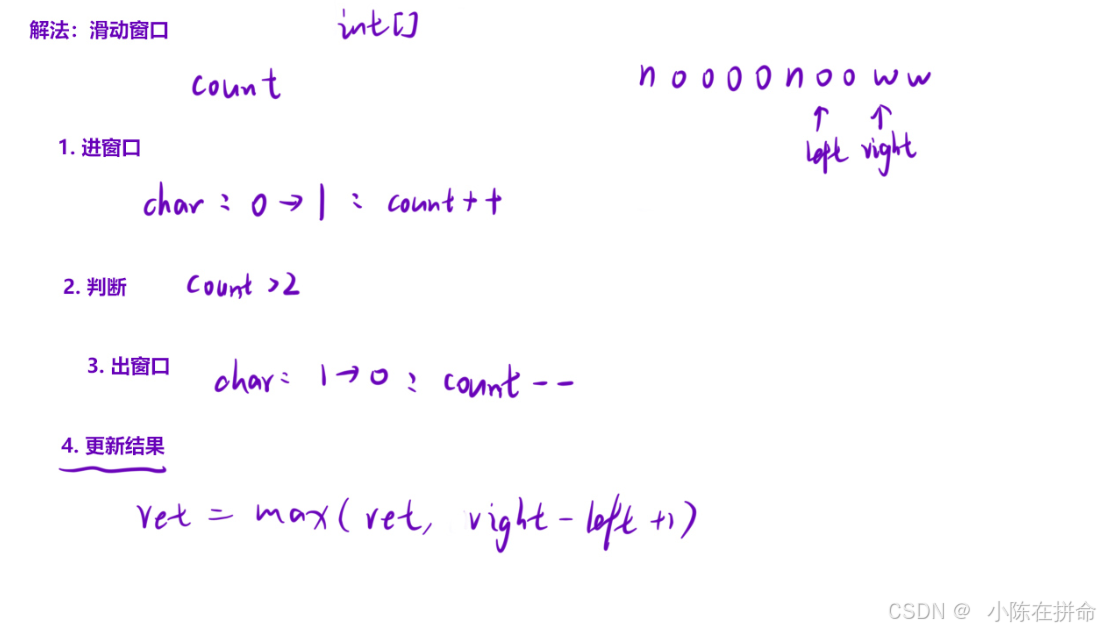 解法：滑动窗口
int[]
count
noooonooww
↑ ↑
left right
1. 进窗口
char : 0→1 : count++
2. 判断 count >2
3. 出窗口 char: 1→0 : count--
4. 更新结果
ret = max(ret, right-left+1)
CSDN @ 小陈在拼命